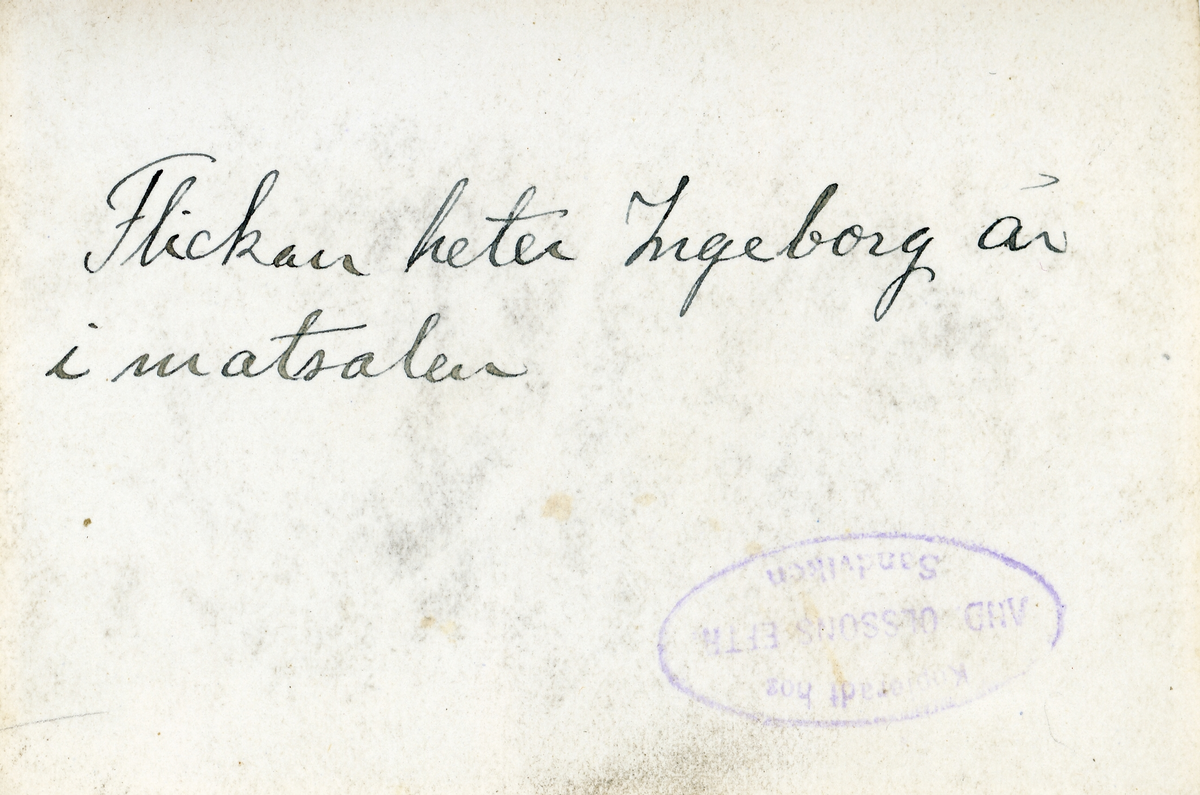 Flickan heter Ingeborg är
i matsalen
Kopieradt hos
AND OLSSONS EFTR
Sandviken